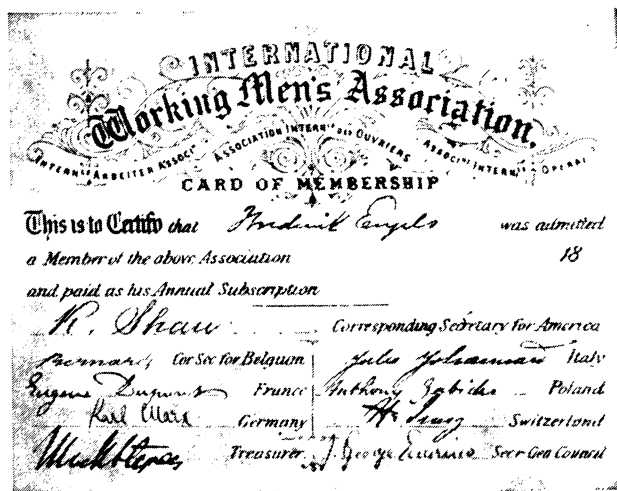 INTERNATIONAL
Working Men's Association.
INTERN^LE ARBEITER ASSOC^N ASSOCIATION INTERN^LE DES OUVRIERS ASSOC^NE INTERN^LE OPERAI
CARD OF MEMBERSHIP
This is to Certify that Frederick Engels was admitted
a Member of the above Association 18
and paid as his Annual Subscription
R. Shaw Corresponding Secretary for America
Bernard Cor Sec for Belgium Italy
Eugene Dupont France Anthony Zabicki Poland
Karl Marx Germany H. Jung Switzerland
Treasurer J. George Eccarius Sec^r Gen Council